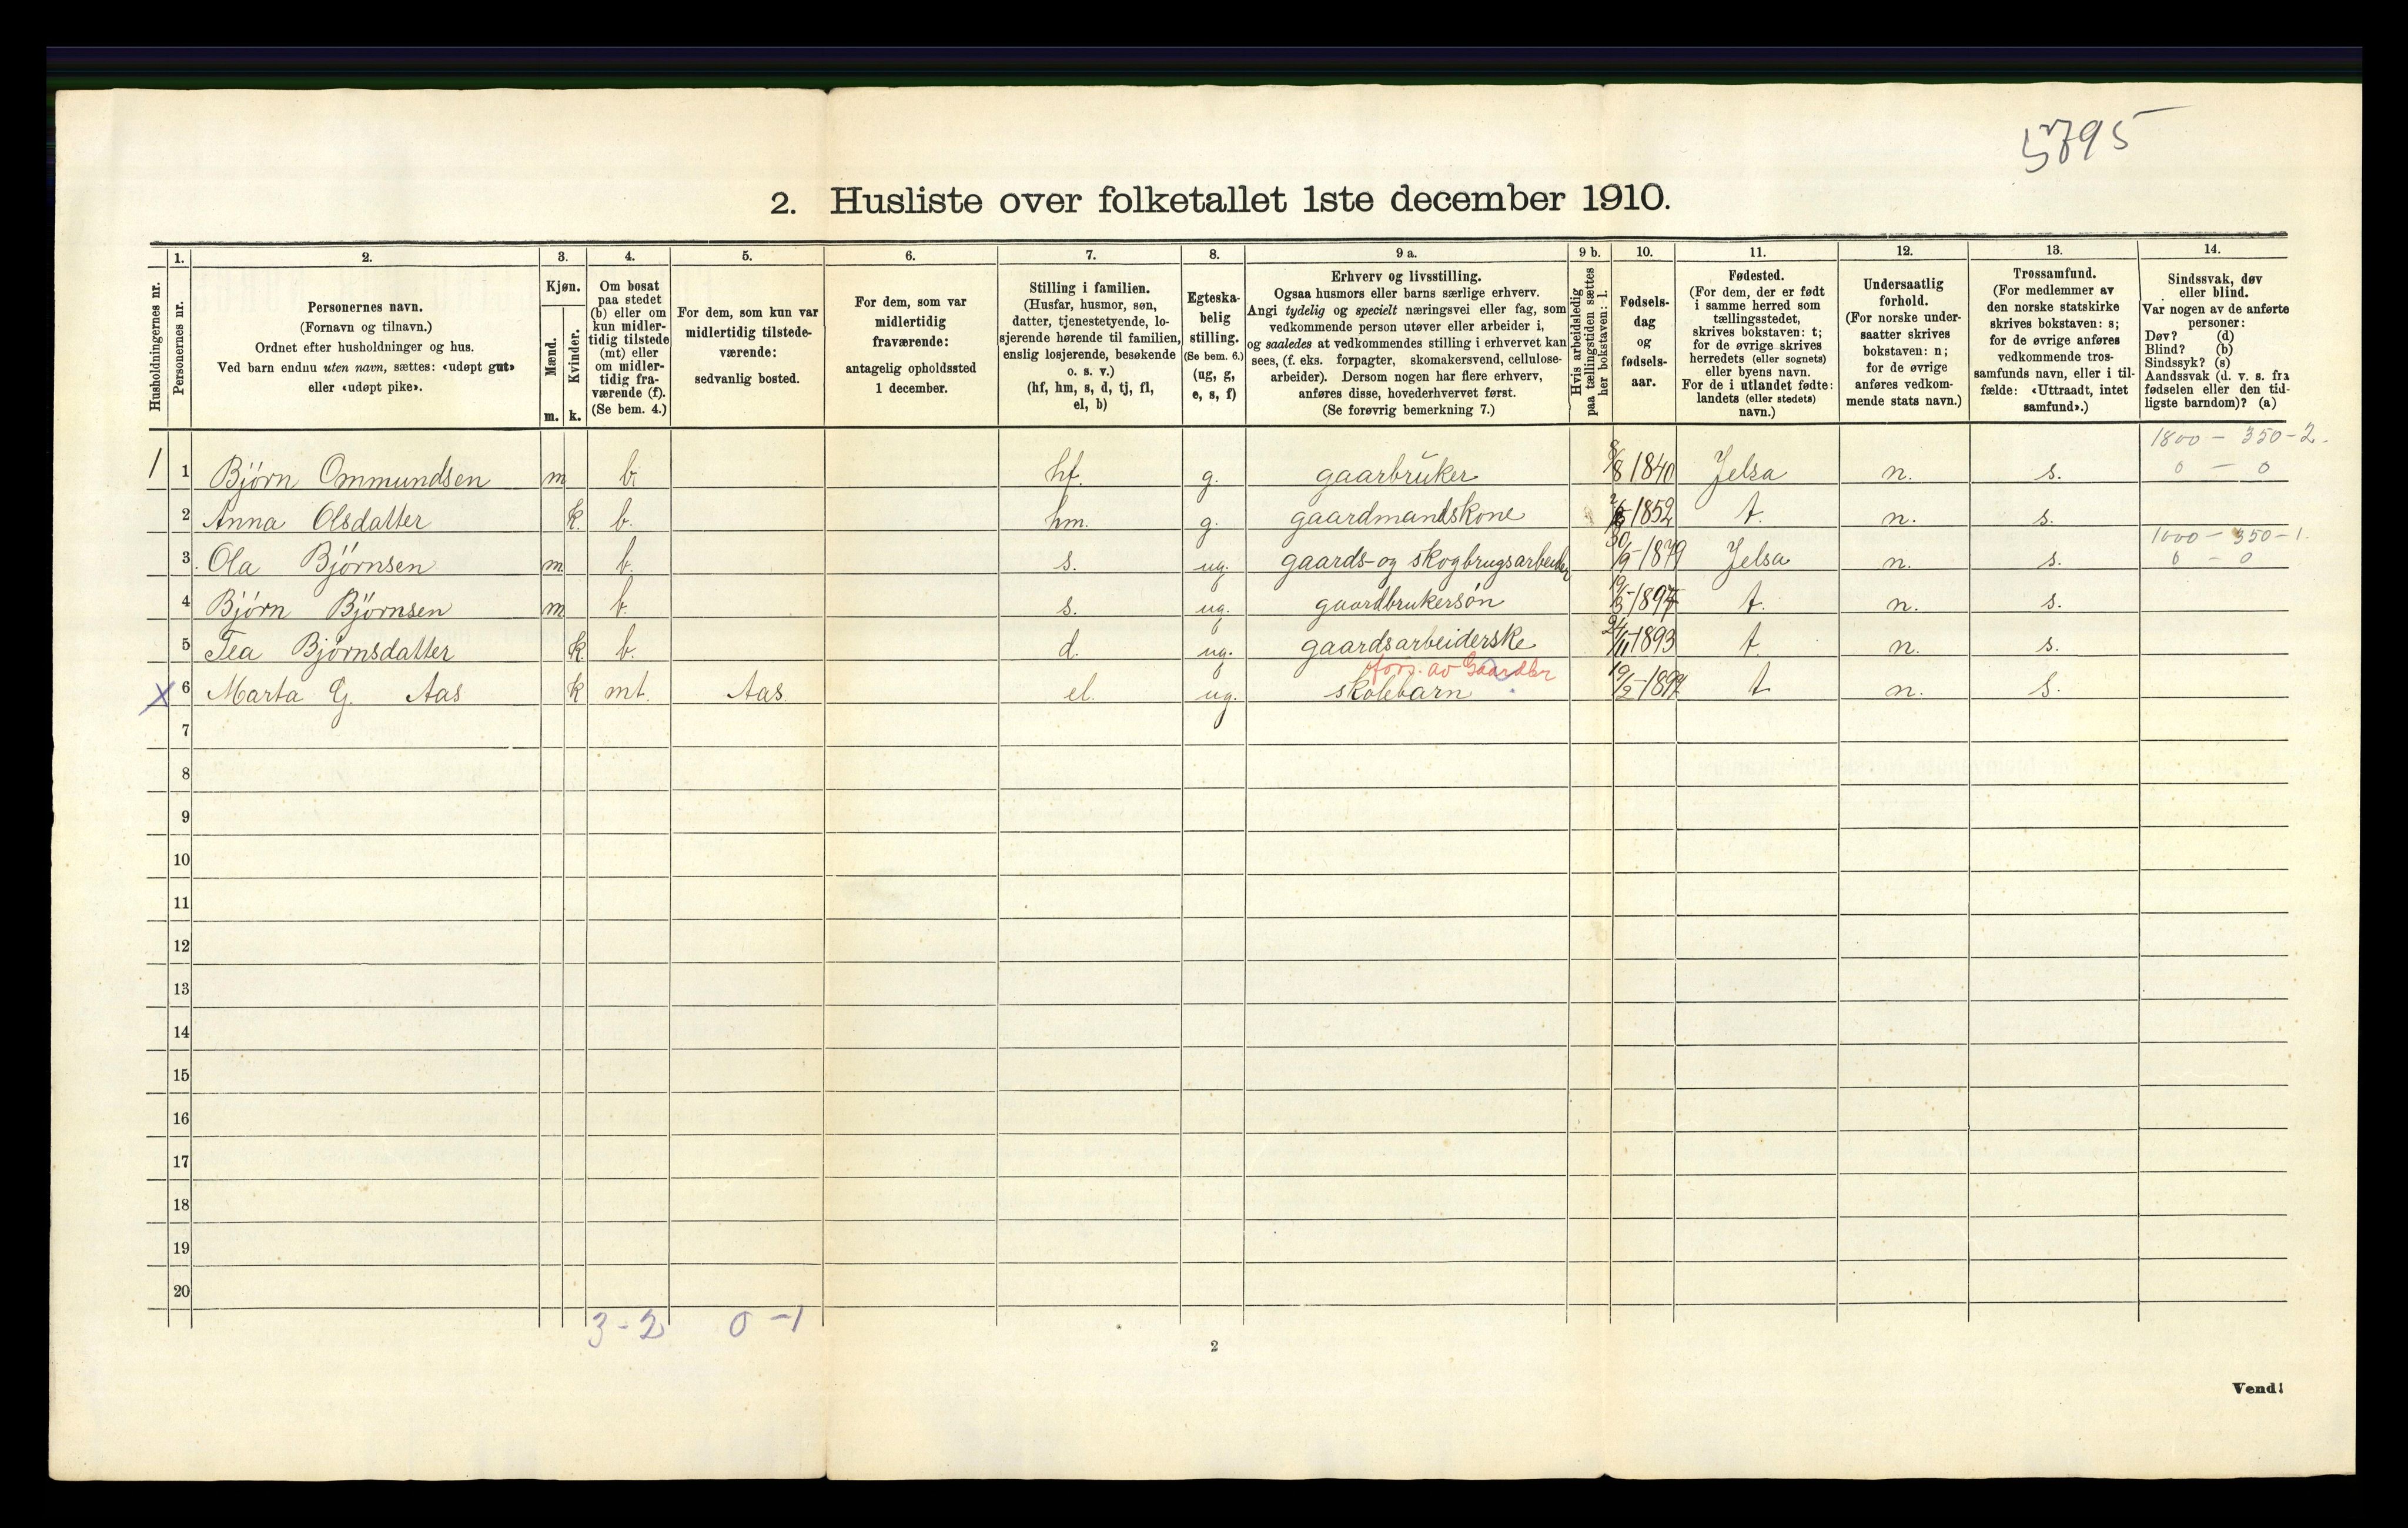 5795
2. Husliste over folketallet 1ste december 1910.
Husholdningernes nr.
1.
Personernes nr.
2.
Personernes navn.
(Fornavn og tilnavn.)
Ordnet efter husholdninger og hus.
Ved barn endnu uten navn, sættes: «udøpt gut»
eller «udøpt pike».
3.
Kjøn.
Mænd.
Kvinder.
m. k.
4.
Om bosat
paa stedet
(b) eller om
kun midler-
tidig tilstede
(mt) eller
om midler-
tidig fra-
værende (f).
(Se bem. 4.)
5.
For dem, som kun var
midlertidig tilstede-
værende:
sedvanlig bosted.
6.
For dem, som var
midlertidig
fraværende:
antagelig opholdssted
1 december.
7.
Stilling i familien.
(Husfar, husmor, søn,
datter, tjenestetyende, lo-
sjerende hørende til familien,
enslig losjerende, besøkende
o. s. v.)
(hf, hm, s, d, tj, fl,
el, b)
8.
Egteska-
belig
stilling.
(Se bem. 6.)
(ug, g,
e, s, f)
9 a.
Erhverv og livsstilling.
Ogsaa husmors eller barns særlige erhverv.
Angi tydelig og specielt næringsvei eller fag, som
vedkommende person utøver eller arbeider i,
og saaledes at vedkommendes stilling i erhvervet kan
sees, (f. eks. forpagter, skomakersvend, cellulose-
arbeider). Dersom nogen har flere erhverv,
anføres disse, hovederhvervet først.
(Se forøvrig bemerkning 7.)
9 b.
Hvis arbeidsledig
paa tællingstiden sættes
her bokstaven: l.
10.
Fødsels-
dag
og
fødsels-
aar.
11.
Fødested.
(For dem, der er født
i samme herred som
tællingsstedet,
skrives bokstaven: t;
for de øvrige skrives
herredets (eller sognets)
eller byens navn.
For de i utlandet fødte:
landets (eller stedets)
navn.)
12.
Undersaatlig
forhold.
(For norske under-
saatter skrives
bokstaven: n;
for de øvrige
anføres vedkom-
mende stats navn.)
13.
Trossamfund.
(For medlemmer av
den norske statskirke
skrives bokstaven: s;
for de øvrige anføres
vedkommende tros-
samfunds navn, eller i til-
fælde: «Uttraadt, intet
samfund».)
14.
Sindssvak, døv
eller blind.
Var nogen av de anførte
personer:
Døv? (d)
Blind? (b)
Sindssyk? (s)
Aandssvak (d. v. s. fra
fødselen eller den tid-
ligste barndom)? (a)
1800 - 350 - 2.
1 1 Bjørn Ommundsen m b. hf. g. gaarbruker 8/8 1840 Jelsa n. s. 0 - 0
2 Anna Olsdatter k. b. hm. g. gaardmandskone 1852 t. n. s.
1000 - 350 - 1.
3 Ola Bjørnsen m. b. s. ug. gaards- og skogbrugsarbeider 30/9-1879 Jelsa n. s. 0 - 0
4 Bjørn Bjørnsen m b. s. ug. gaardbrukersøn 19/3-1897 t. n. s.
5 Tea Bjørnsdatter k. b. d. ug. gaardsarbeiderske 24/11-1893 t. n. s.
fors. av Gaardbr
X 6 Marta G. Aas k mt. Aas. el. ug. skolebarn 19/2-1897 t n. s.
7
8
9
10
11
12
13
14
15
16
17
18
19
20
3 - 2 0 - 1
2
Vend!